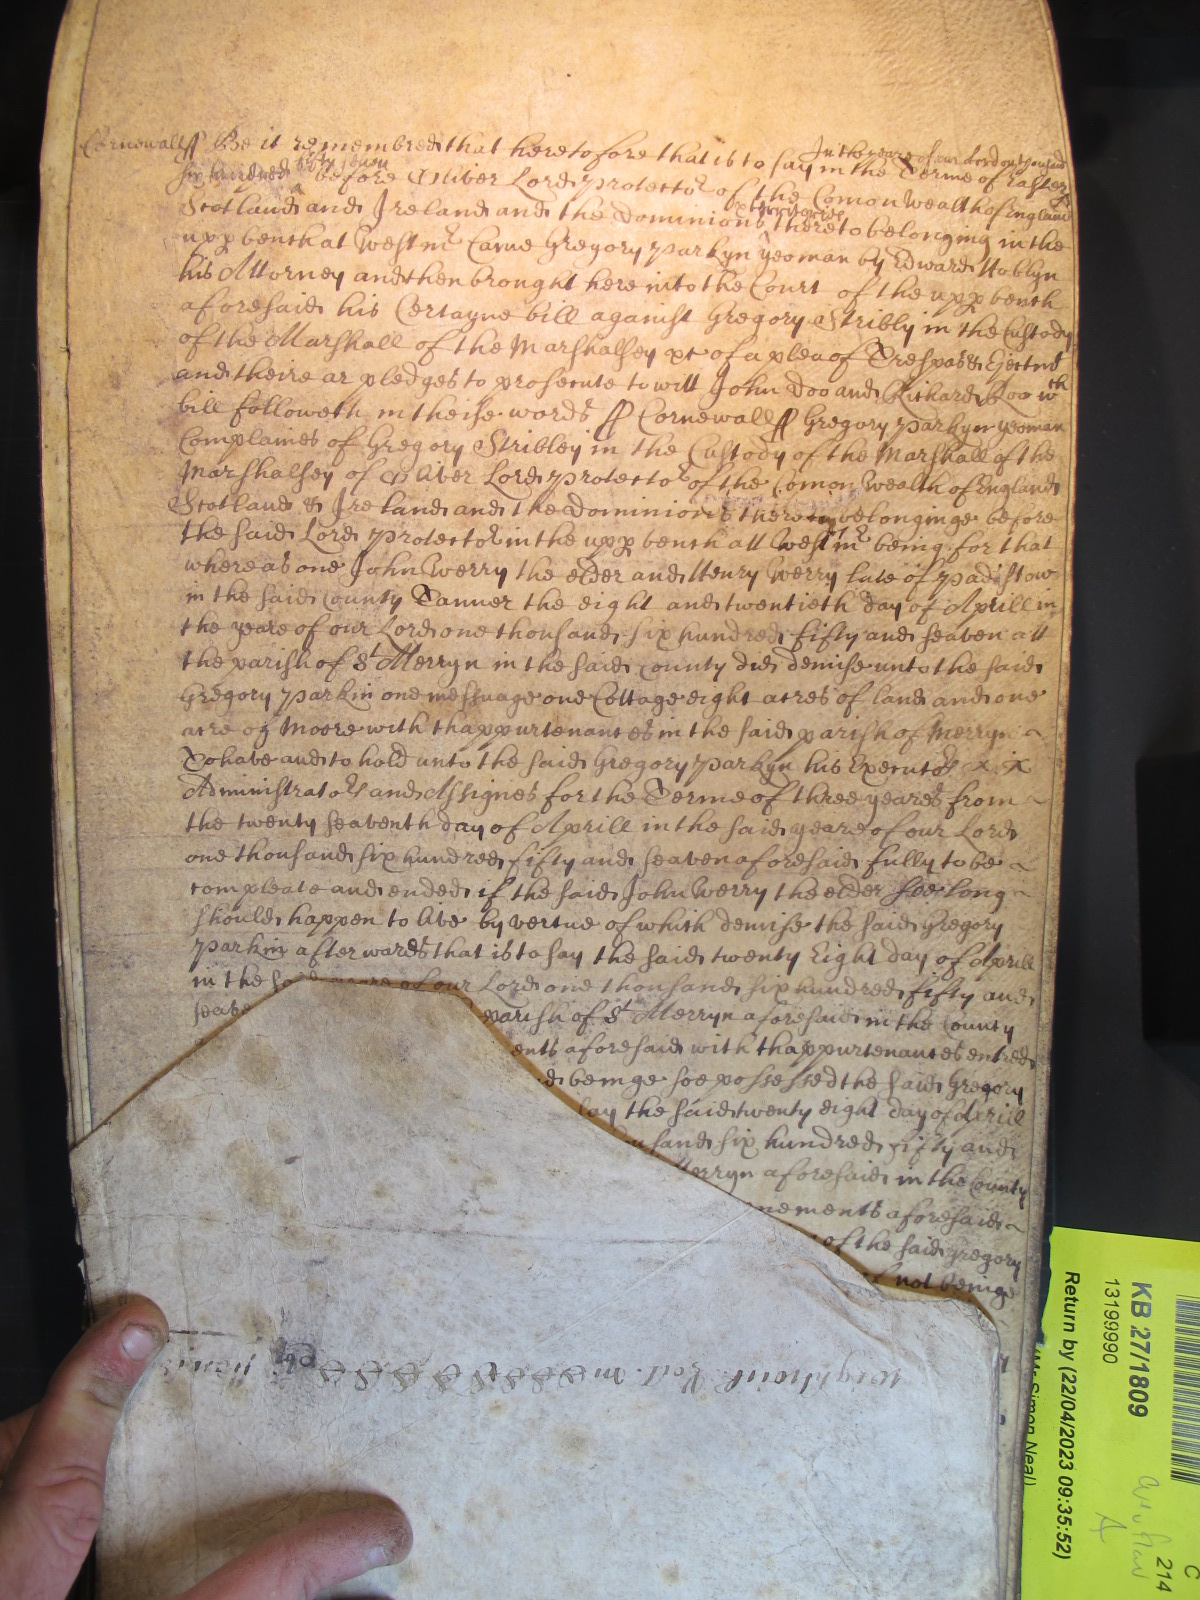 Cornewall ss Be it remembred that heretofore that is to say in the Terme of Easter
In the yeare of our Lord on thousand
six hundred fifty seven before Oliver Lord Protector of the Comon Wealth of England
Scotland and Ireland and the dominions thereto belonging in the
& territories
upp bench at Westmr Came Gregory Parkyn yeoman by Edward Hoblyn
his Attorney and then brought here into the Court of the upp bench
aforesaid his Certayne bill against Gregory Stribly in the Custody
of the Marshall of the Marshalsey &c of a plea of Trespas & Ejectmt
and theire ar pledges to prosecute to witt John Doo and Richard Roo wch
bill followeth in theise words ss Cornewall ss Gregory Parkyn yeoman
Complaines of Gregory Stribley in the Custody of the Marshall of the
Marshalsey of Oliver Lord Protector of the Comon Wealth of England
Scotland & Ireland and the dominions thereto belonginge before
the said Lord Protector in the upp bench att Westmr being for that
whereas one John Werry the elder and Henry Werry late of Padistow
in the said County Tanner the eight and twentieth day of Aprill in
the yeare of our Lord one thousand six hundred fifty and seaven att
the parish of St Merryn in the said County did demise unto the said
Gregory Parkin one messuage one Cottage eight acres of land and one
acre of Moore with thappurtenances in the said parish of Merryn
To have and to hold unto the said Gregory Parkyn his Executors
Administrators and Assignes for the Terme of three yeares from
the twenty seaventh day of Aprill in the said yeare of our Lord
one thousand six hundred fifty and seaven aforesaid fully to be
compleate and ended if the said John Werry the elder soe long
should happen to live by vertue of which demise the said Gregory
Parkin afterwards that is to say the said twenty Eight day of Aprill
in the said yeare of our Lord one thousand six hundred fifty and
seave parish of St Merryn aforesaid in the County
ents aforesaid with thappurtenances entred
d beinge soe possessed the said Gregory
say the said twenty eight day of Aprill
usand six hundred fifty and
Merryn aforesaid in the County
nements aforesaid
of the said Gregory
not beinge
KB 27/1809
13199990
Return by (22/04/2023 09:35:52)
(Mr Simon Neal)
C
214
A